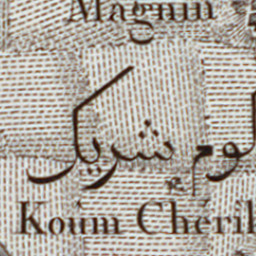 Magnin
لوم شريك
Koum Cherik